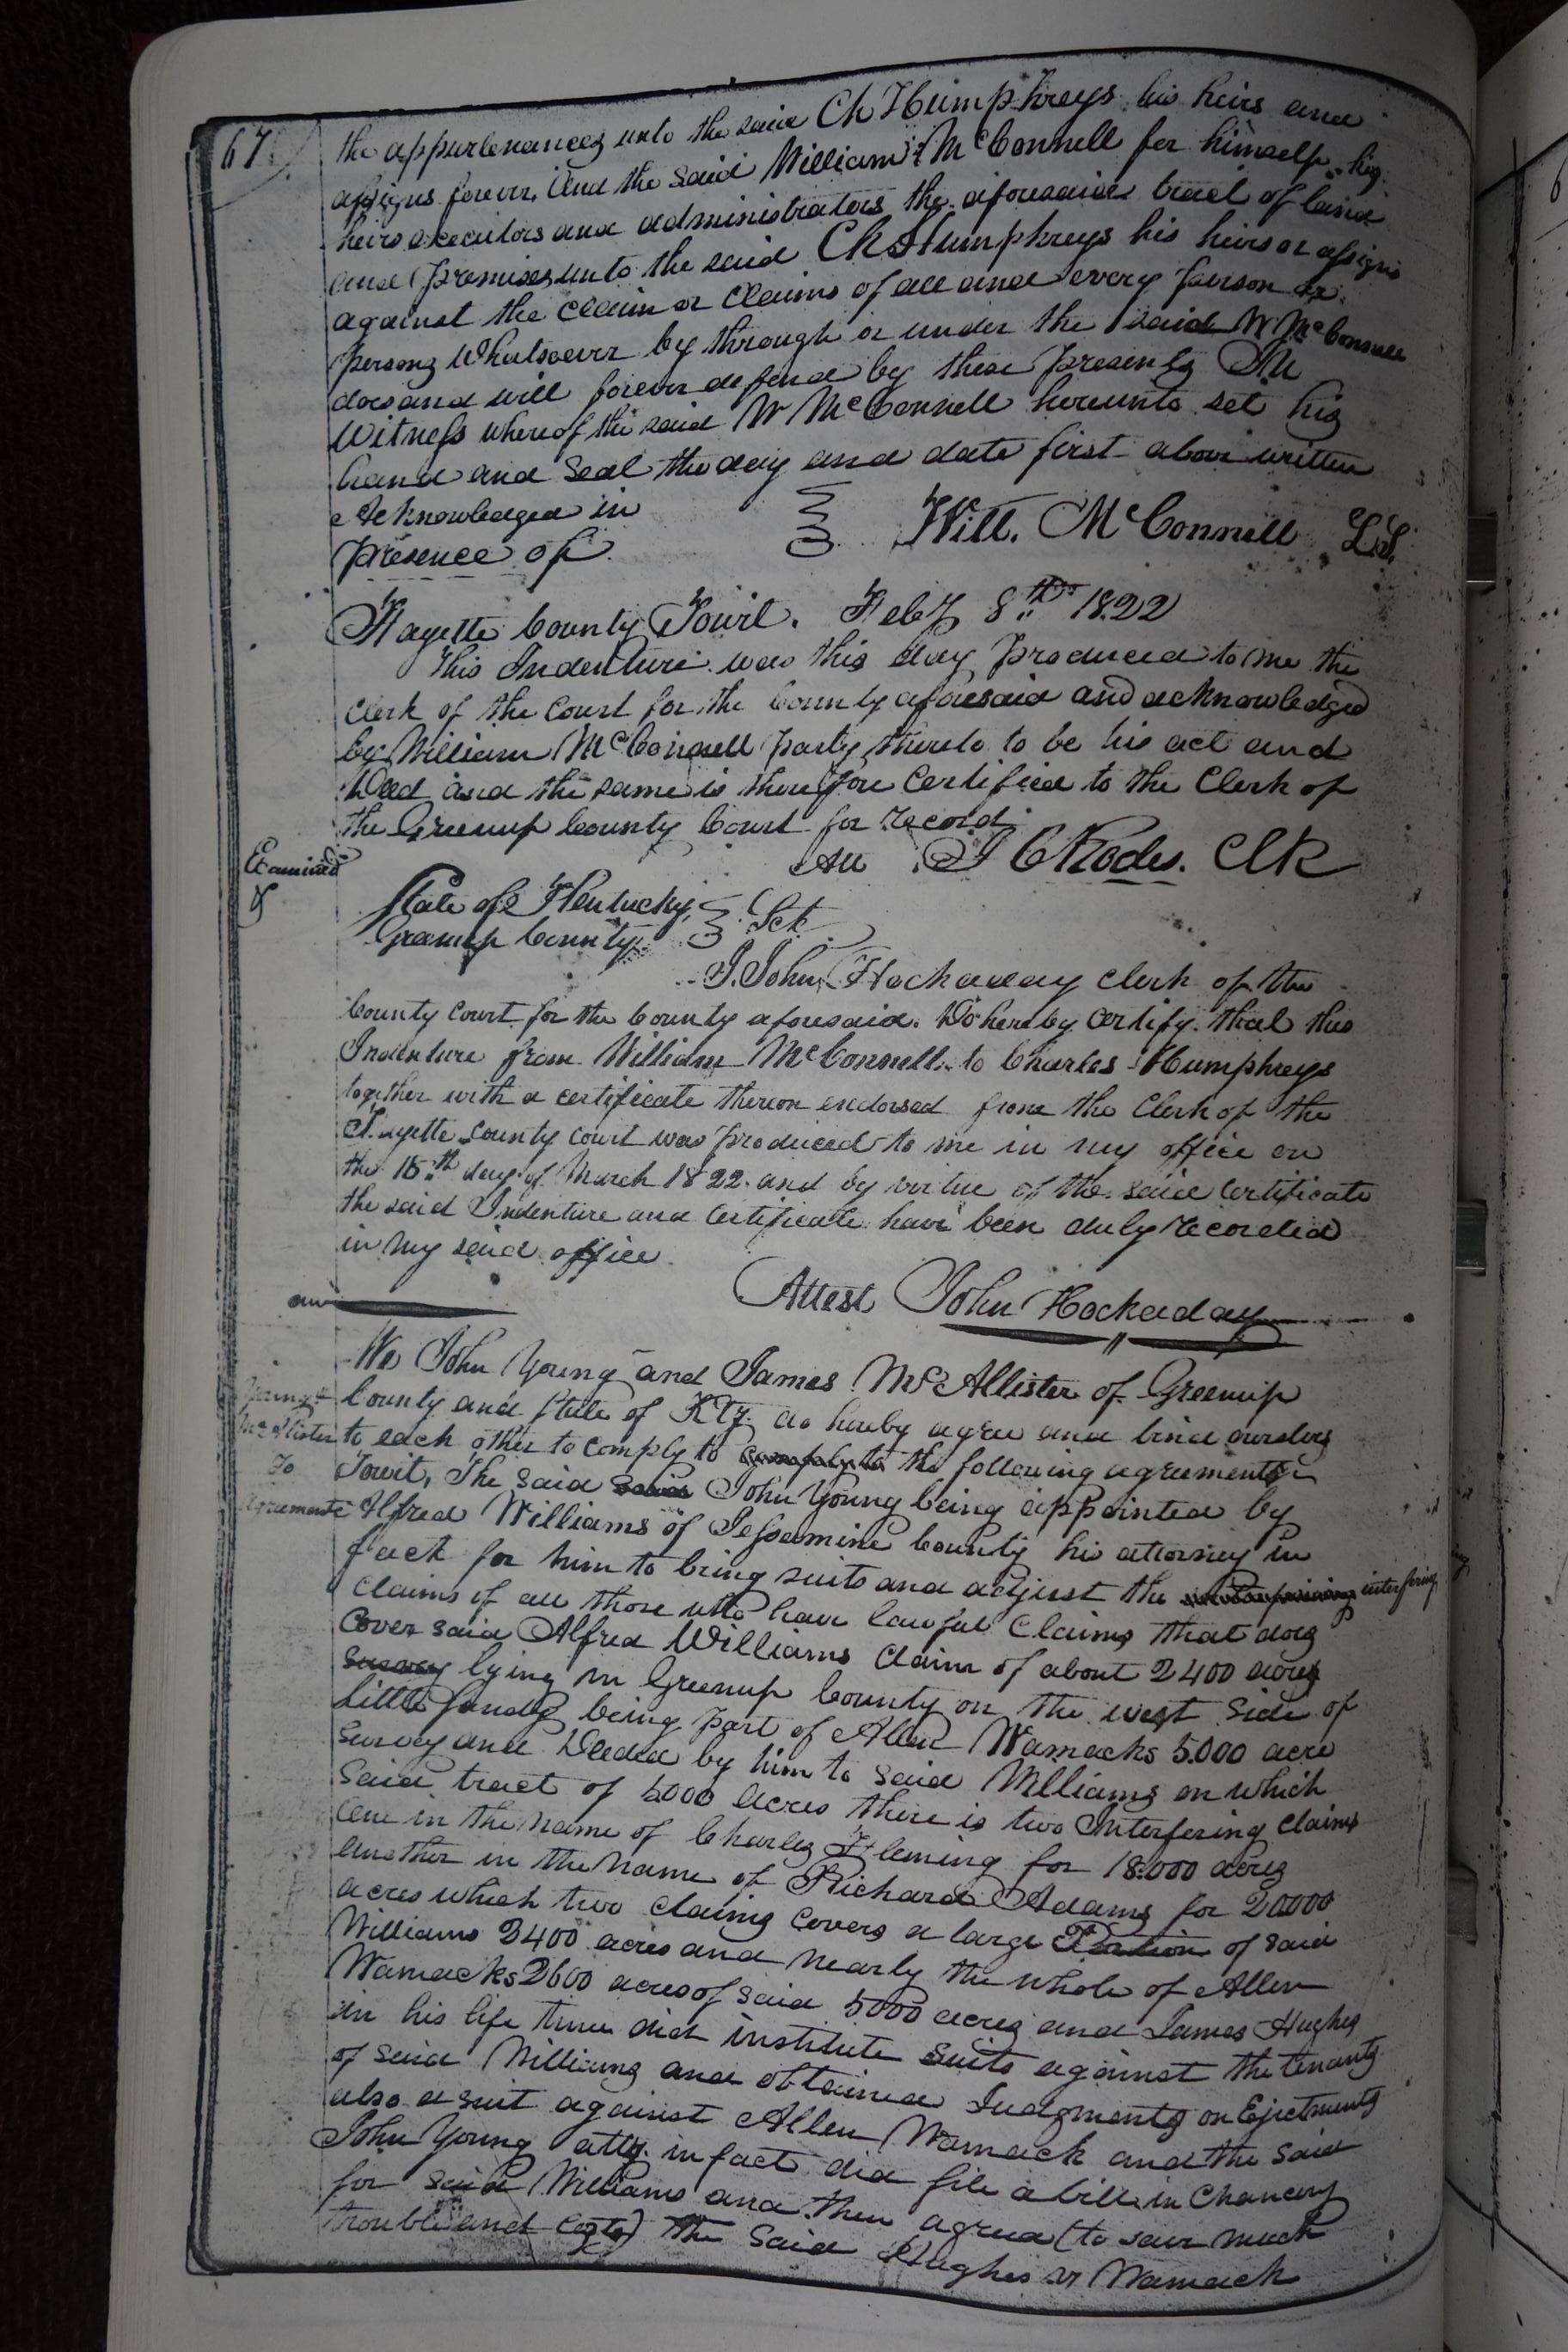 67
the appurtenances unto the said Ch Humphreys his heirs and
assigns forever. And the said William McConnell for himself his
heirs executors and administrators the aforesaid tract of land
and premises unto the said Ch Humphreys his heirs or assigns
against the claim or claims of all and every person or
persons Whatsoever by through or under the said W McConnell
does and will forever defend by these presents In
Witness whereof the said W McConnell hereunto set his
hand and Seal the day and date first above written
Acknowledged in
presence of
Will. McConnell L.S.
Fayette County Towit. Feby 8th 1822
This Indenture was this day produced to me the
Clerk of the Court for the County aforesaid and acknowledged
by William McConnell party thereto to be his act and
Deed and the same is therefore Certified to the Clerk of
the Greenup County Court for record
Att J C Rodes. Clk
Examined
State of Kentucky
Greenup County Sct
I John Hockaday Clerk of the
County Court for the County aforesaid. Do hereby Certify that this
Indenture from William McConnell to Charles Humphreys
together with a certificate thereon endorsed from the Clerk of the
Fayette County Court was produced to me in my office on
the 15th day of March 1822 and by virtue of the said certificate
the said Indenture and Certificate have been duly recorded
in my said office
Attest John Hockaday
We John Young and James McAllister of Greenup
County and State of Kty. do hereby agree and bind ourselves
to each other to comply to comply to the following agreements
Towit, The said said John Young being appointed by
Young &
McAllister
To
Agreement
Alfred Williams of Jessamine County his attorney in
fact for him to bring suits and adjust the interfering
Claims of all those who have lawful Claims that does
Cover said Alfred Williams Claim of about 2400 acres
survey lying in Greenup County on the west side of
Little Sandy being part of Allen Wamacks 5.000 acre
survey and Deeded by him to said Williams on which
said tract of 5000 acres there is two Interfering Claims
one in the name of Charles Fleming for 18.000 acres
another in the name of Richard Adams for 20000
acres which two Claims Covers a large Portion of said
Williams 2400 acres and nearly the whole of Allen
Wamacks 2600 acres of said 5000 acres and James Hughes
in his life time did institute Suits against the tenants
of said Williams and obtained Judgments on Ejectments
also a suit against Allen Wamack and the said
John Young atty. in fact did file a bill in Chancery
for said Williams and then agreed (to save much
trouble and costs) the said Hughes vs Wamack